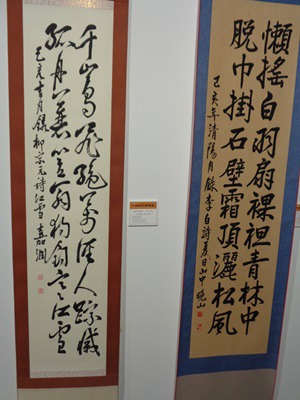 懶搖白羽扇裸袒青林中
脫巾掛石壁露頂灑松風
己亥年清陽月錄李白詩夏日山中 曉山
千山鳥飛絕萬徑人踪滅
孤舟蓑笠翁独釣寒江雪
己亥吉月錄柳宗元詩江雪